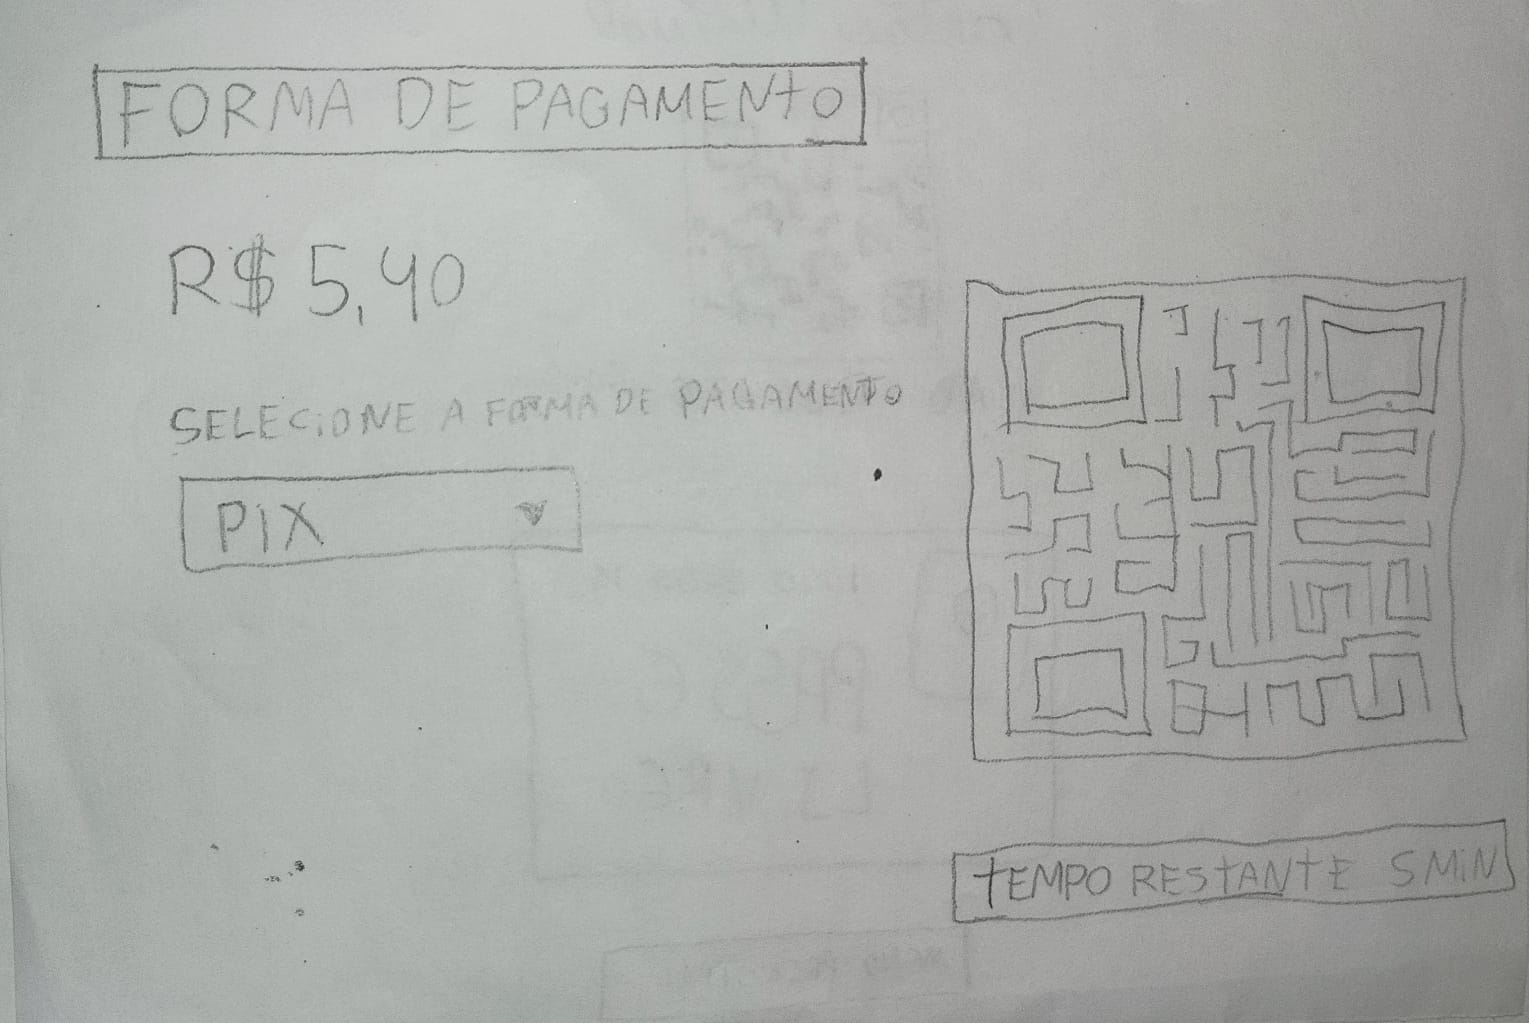 FORMA DE PAGAMENTO
R$ 5,40
SELECIONE A FORMA DE PAGAMENTO
PIX
TEMPO RESTANTE 5 MIN